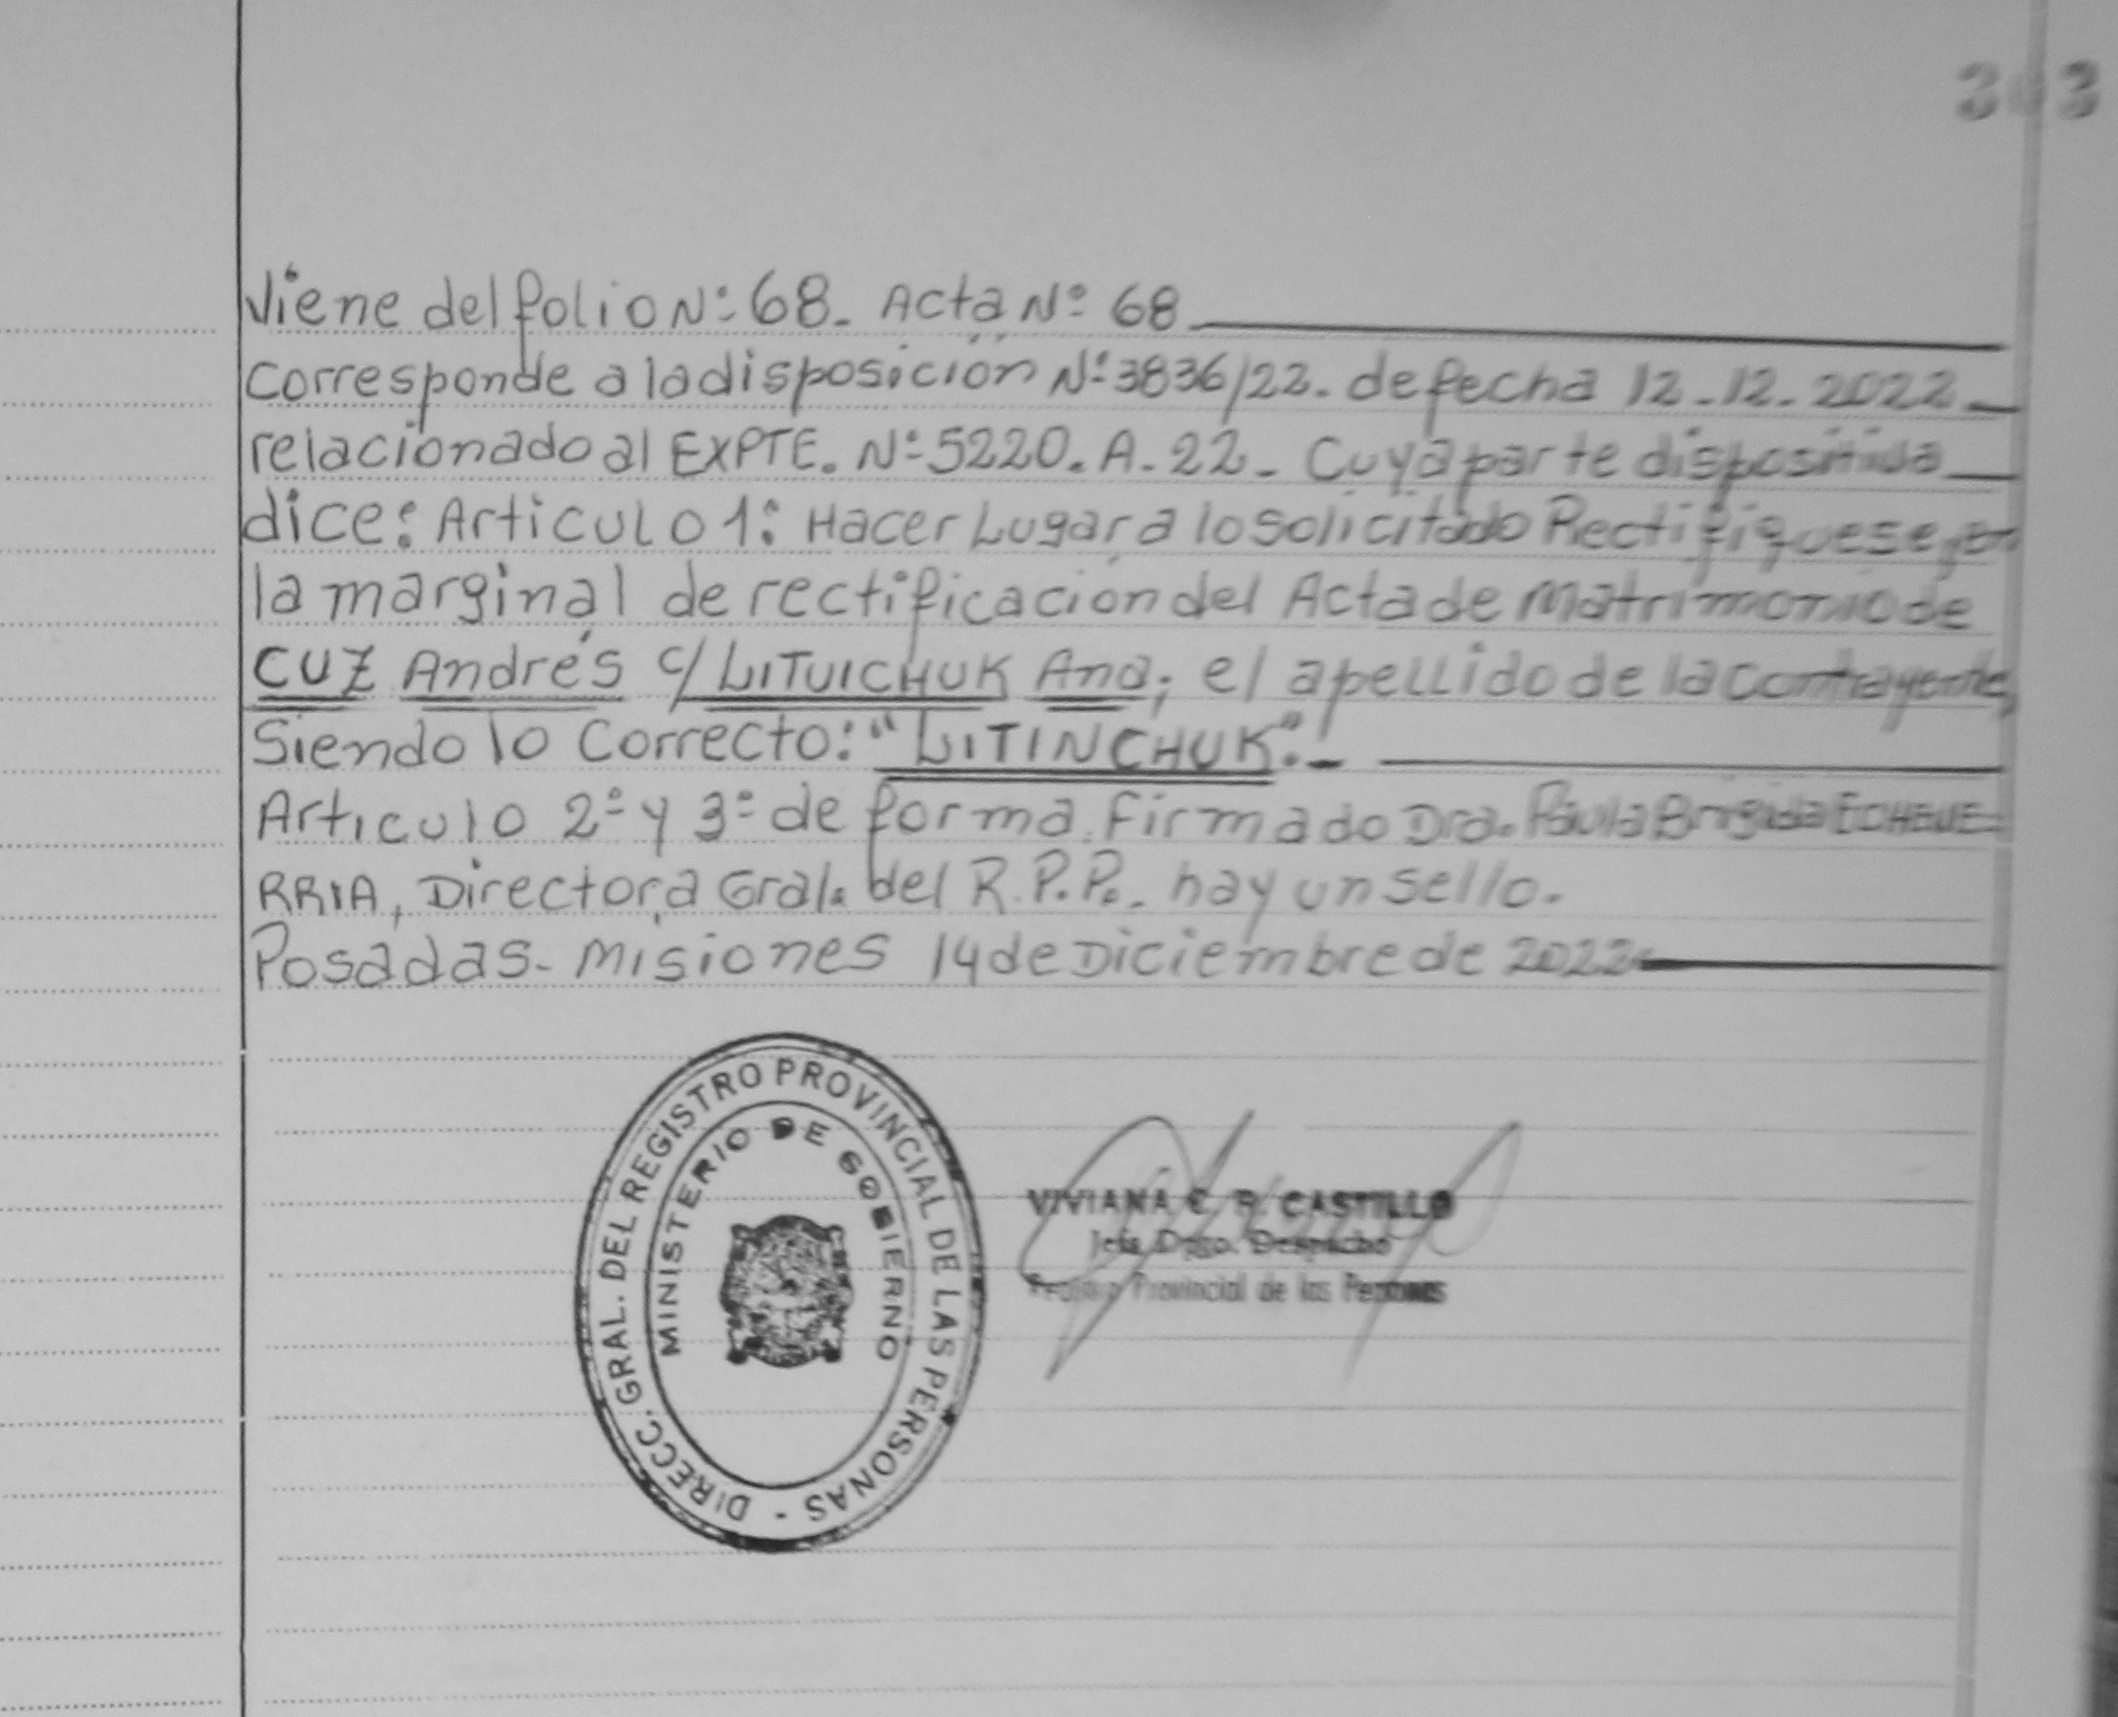 Viene del folio Nº: 68. Acta Nº 68
Corresponde a la disposición Nº 3836/22. de fecha 12-12-2022
relacionado al EXPTE. Nº 5220. A. 22. Cuya parte dispositiva
dice: Articulo 1: Hacer Lugar a lo solicitado Rectifiquese, en
la marginal de rectificación del Acta de Matrimonio de
CUZ Andrés c/ LITUICHUK Ana; el apellido de la contrayente,
Siendo lo Correcto: "LITINCHUK".-
Articulo 2º y 3º de forma. Firmado Dra. Paula Brigida ECHEVE-
RRIA, Directora Gral. del R.P.P. hay un sello.
Posadas- Misiones 14 de Diciembre de 2022
DIRECC. GRAL. DEL REGISTRO PROVINCIAL DE LAS PERSONAS -
MINISTERIO DE GOBIERNO
VIVIANA C. R. CASTILLO
Jefa Dpto. Despacho
Registro Provincial de las Personas